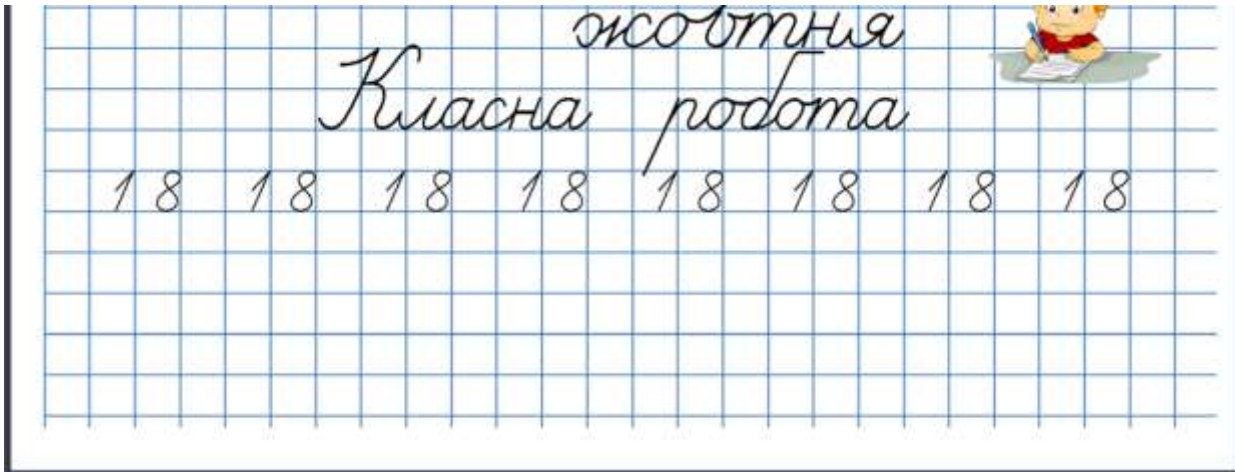 жовтня
Класна робота
18 18 18 18 18 18 18 18